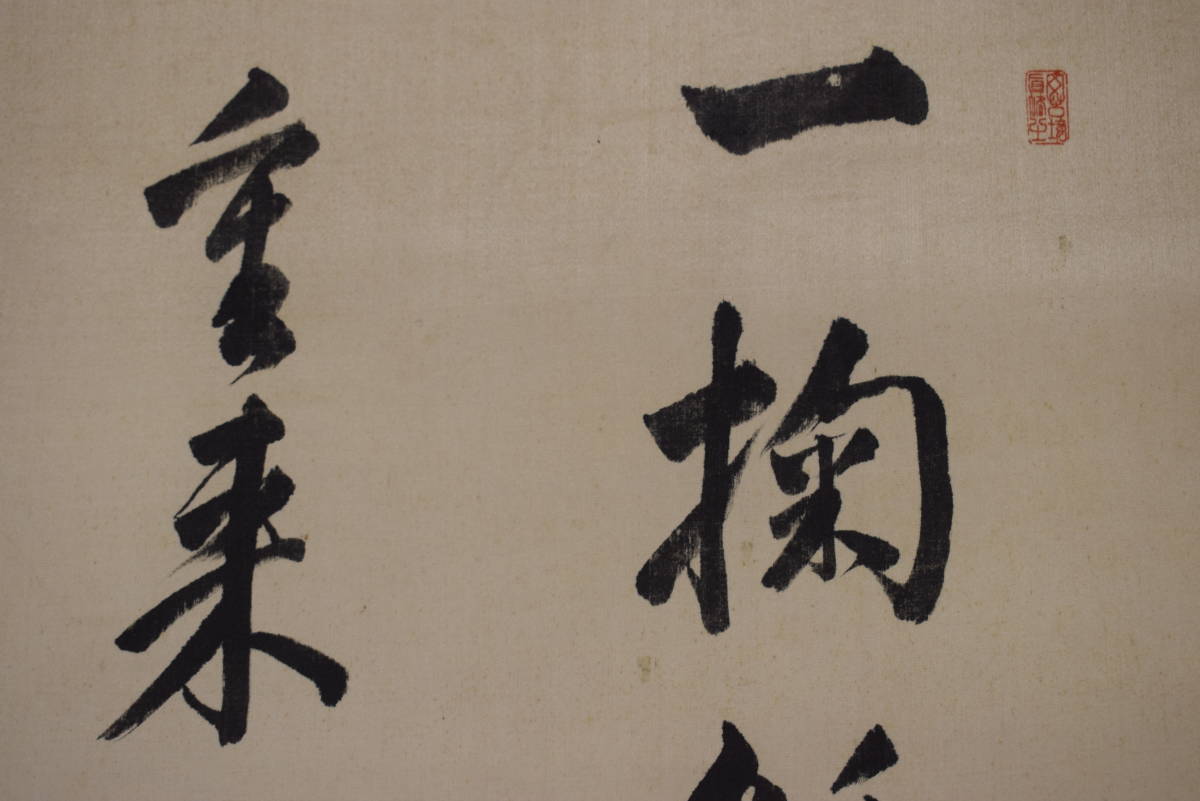 一掬
重来